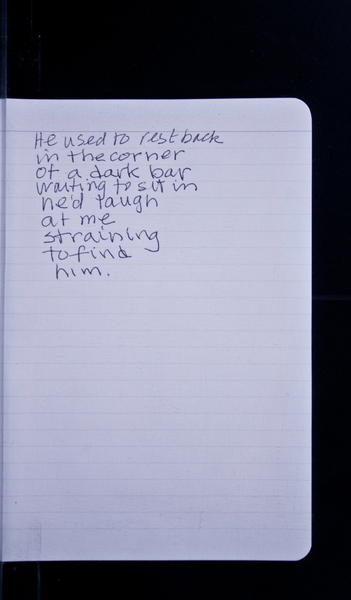 He used to rest back
in the corner
of a dark bar
waiting to sit in
he'd laugh
at me
straining
to find
him.